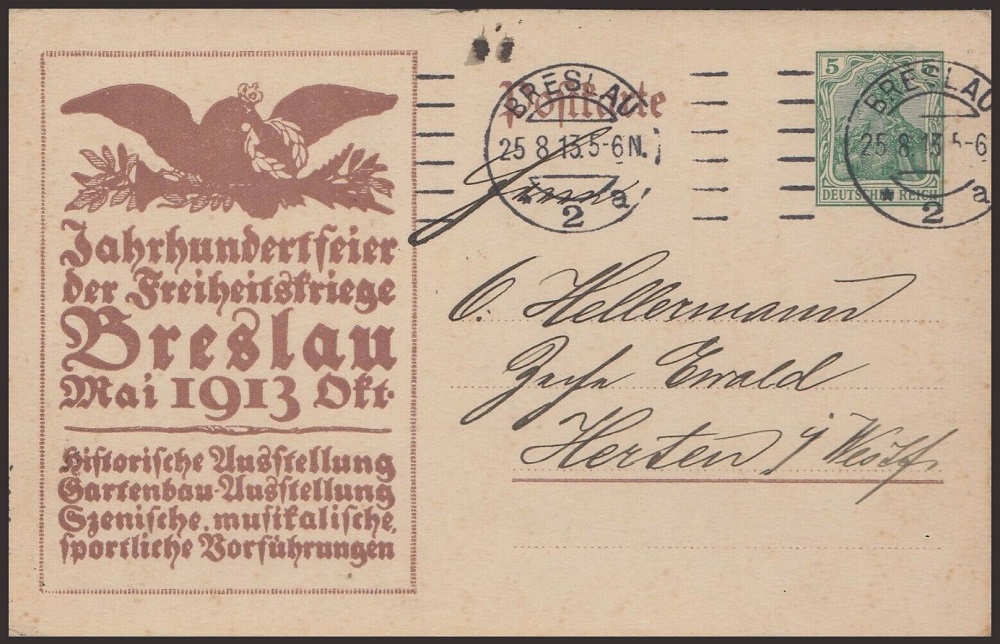 Jahrhundertfeier
der Freiheitskriege
Breslau
Mai 1913 Okt.
Historische Ausstellung
Gartenbau-Ausstellung
Szenische, musikalische,
sportliche Vorführungen
Postkarte
BRESLAU
25.8.13.5-6N.
2 a
5
DEUTSCHES REICH
BRESLAU
25.8.13 5-6
* 2 a
C. Hellermann
Zeche Ewald
Herten i/ Westf.